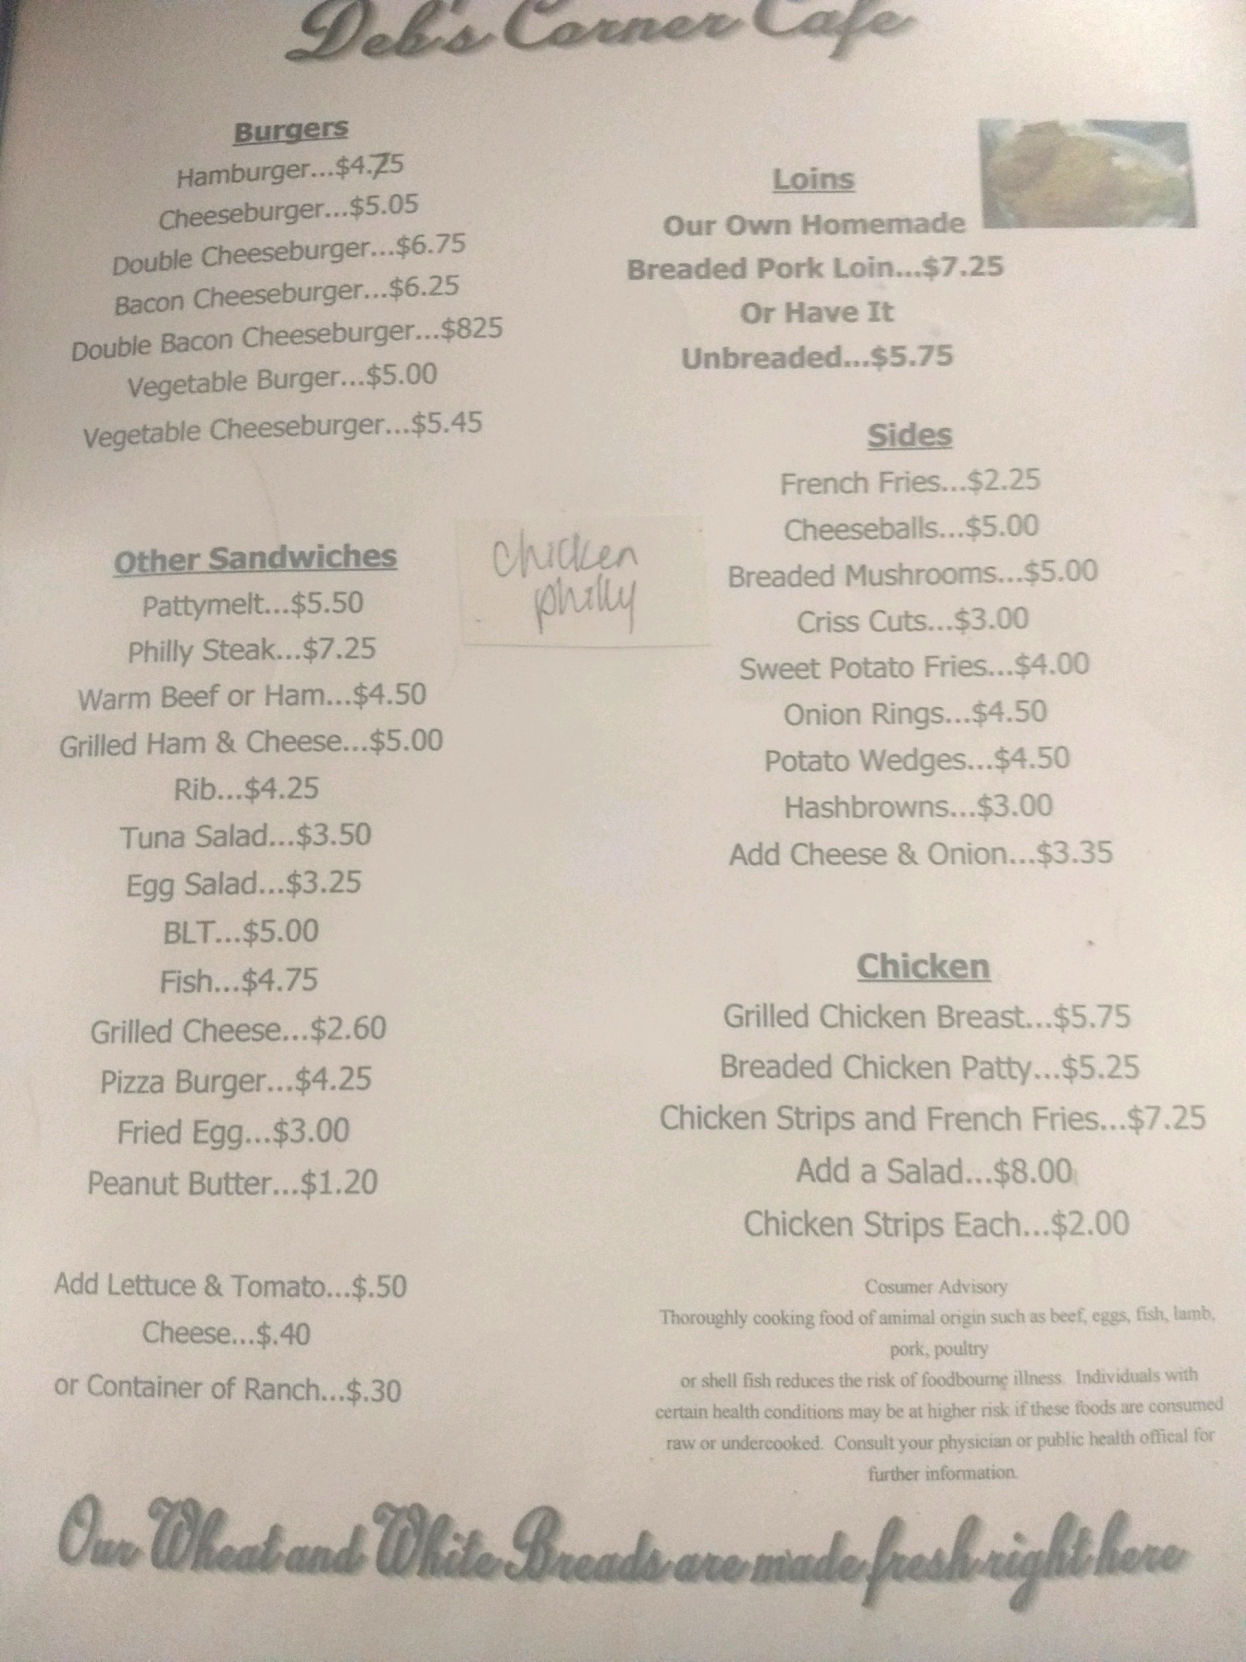 Deb's Corner Cafe
Burgers
Hamburger...$4.75
Cheeseburger...$5.05
Double Cheeseburger...$6.75
Bacon Cheeseburger...$6.25
Double Bacon Cheeseburger...$825
Vegetable Burger...$5.00
Vegetable Cheeseburger...$5.45
Other Sandwiches
Pattymelt...$5.50
Philly Steak...$7.25
Warm Beef or Ham...$4.50
Grilled Ham & Cheese...$5.00
Rib...$4.25
Tuna Salad...$3.50
Egg Salad...$3.25
BLT...$5.00
Fish...$4.75
Grilled Cheese...$2.60
Pizza Burger...$4.25
Fried Egg...$3.00
Peanut Butter...$1.20
Add Lettuce & Tomato...$.50
Cheese...$.40
or Container of Ranch...$.30
chicken
philly
Loins
Our Own Homemade
Breaded Pork Loin...$7.25
Or Have It
Unbreaded...$5.75
Sides
French Fries...$2.25
Cheeseballs...$5.00
Breaded Mushrooms...$5.00
Criss Cuts...$3.00
Sweet Potato Fries...$4.00
Onion Rings...$4.50
Potato Wedges...$4.50
Hashbrowns...$3.00
Add Cheese & Onion...$3.35
Chicken
Grilled Chicken Breast...$5.75
Breaded Chicken Patty...$5.25
Chicken Strips and French Fries...$7.25
Add a Salad...$8.00
Chicken Strips Each...$2.00
Cosumer Advisory
Thoroughly cooking food of amimal origin such as beef, eggs, fish, lamb,
pork, poultry
or shell fish reduces the risk of foodbourne illness. Individuals with
certain health conditions may be at higher risk if these foods are consumed
raw or undercooked. Consult your physician or public health offical for
further information.
Our Wheat and White Breads are made fresh right here